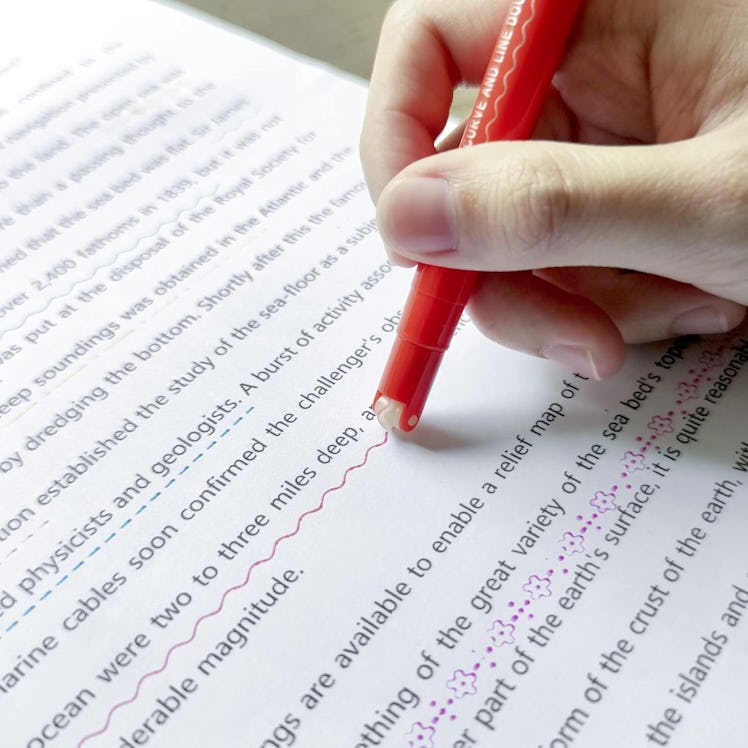 CURVE AND LINE DOU
contract to the
navigation presented by
to the land. The open sea was
re than a passing thought to the
ned that the sea bed was flat. Sir James
over 2,400 fathoms in 1839, but it was not
was put at the disposal of the Royal Society for
eep soundings was obtained in the Atlantic and the
by dredging the bottom. Shortly after this the famo
tion established the study of the sea-floor as a subj
d physicists and geologists. A burst of activity asso
marine cables soon confirmed the challenger's obs
ocean were two to three miles deep, a
derable magnitude.
ngs are available to enable a relief map of t
ething of the great variety of the sea bed's topo
er part of the earth's surface, it is quite reasonabl
orm of the crust of the earth, with
the islands and